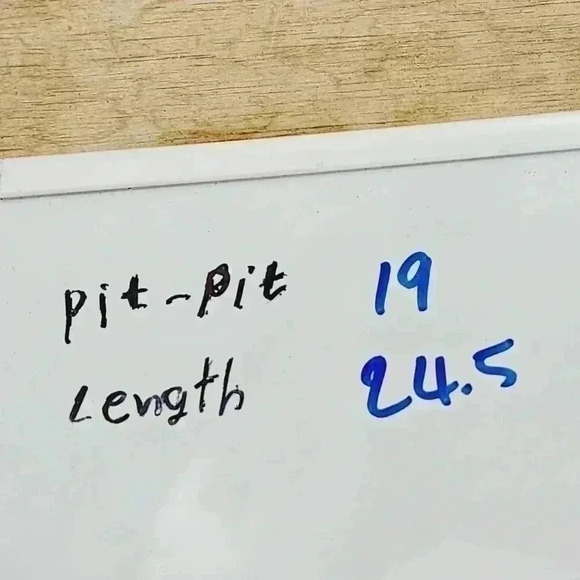 pit-pit 19
Length 24.5